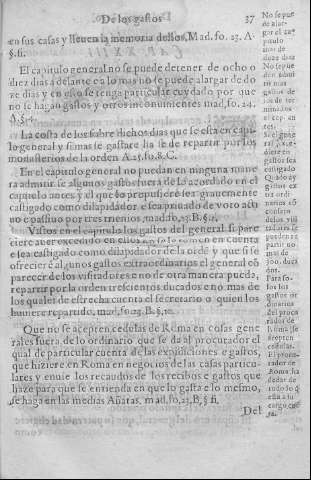 De los gastos 37
en sus casas y lleuen la memoria dellos, Mad. fo. 23. A.
§. fi.
El capitulo general no se puede detener de ocho o
diez dias adelante en lo mas no se puede alargar de do
ze dias y en esso se tenga particular cuydado por que
no se hagan gastos y otros inconuinientes mad, fo. 24.
A. §. 4.
La costa de los sobre dichos dias que se esta en capi
lo general y si mas se gastare ha se de repartir por los
monasterios de la orden A. 25. fo. 8. C.
En el capitulo general no puedan en ninguna mane
ra admitir se algunos gastos fuera de lo acordado en el
capitulo antes, y el que lo propusiere sea grauemente
castigado como dilapidador, e sea priuado de voto acti
uo e passiuo por tres trienios, mad, fo, 23. B. §. 2.
Vistos en el capitulo los gastos del general si pare
ciere auer excedido en ellos no se le tomen en cuenta
e sea castigado como dilapidador de la orde y que si se
ofrecere algunos gastos extraordinarios el general cō
parecer de los visitadores e no de otra manera pueda,
repartir por la orden trescientos ducados e no mas de
los quales de estrecha cuenta el secretario o quien los
huuiere repartido, mad, fo. 23. B. §. 10.
Que no se accepten cedulas de Roma en cosas gene
rales fuera de lo ordinario que se da al procurador el
qual de particular cuenta de las expidiciones e gastos,
que hiziere en Roma en negocios de las casas particu-
lares y enuie los recaudos de los recibos e gastos que
haze para que se entienda en que lo gasta e lo mesmo,
se haga en las medias Añatas, mad, fo, 23, B, § fi,
Del
No se pue
de alar-
gar el ca-
pitulo
mas de
doze dias
No se pue
den admi
tir mas
gastos de
los
termina
dos
el cap. an
tes.
Si el gene
ral
diere en
gastos sea
castigado
Quādo ay
gastos ex
tra ordi
narios cō
consejo
delos visi
tadores se
pueden re
partir no
mas de
300. duca
dos.
Para to-
dos los
gastos or
dinarios
del procu
rador de
Roma se
accepten
cedulas.
El procu-
rador de
Roma ha
dedar de
todo lo q̄
esta a su
cargo cue
ta.